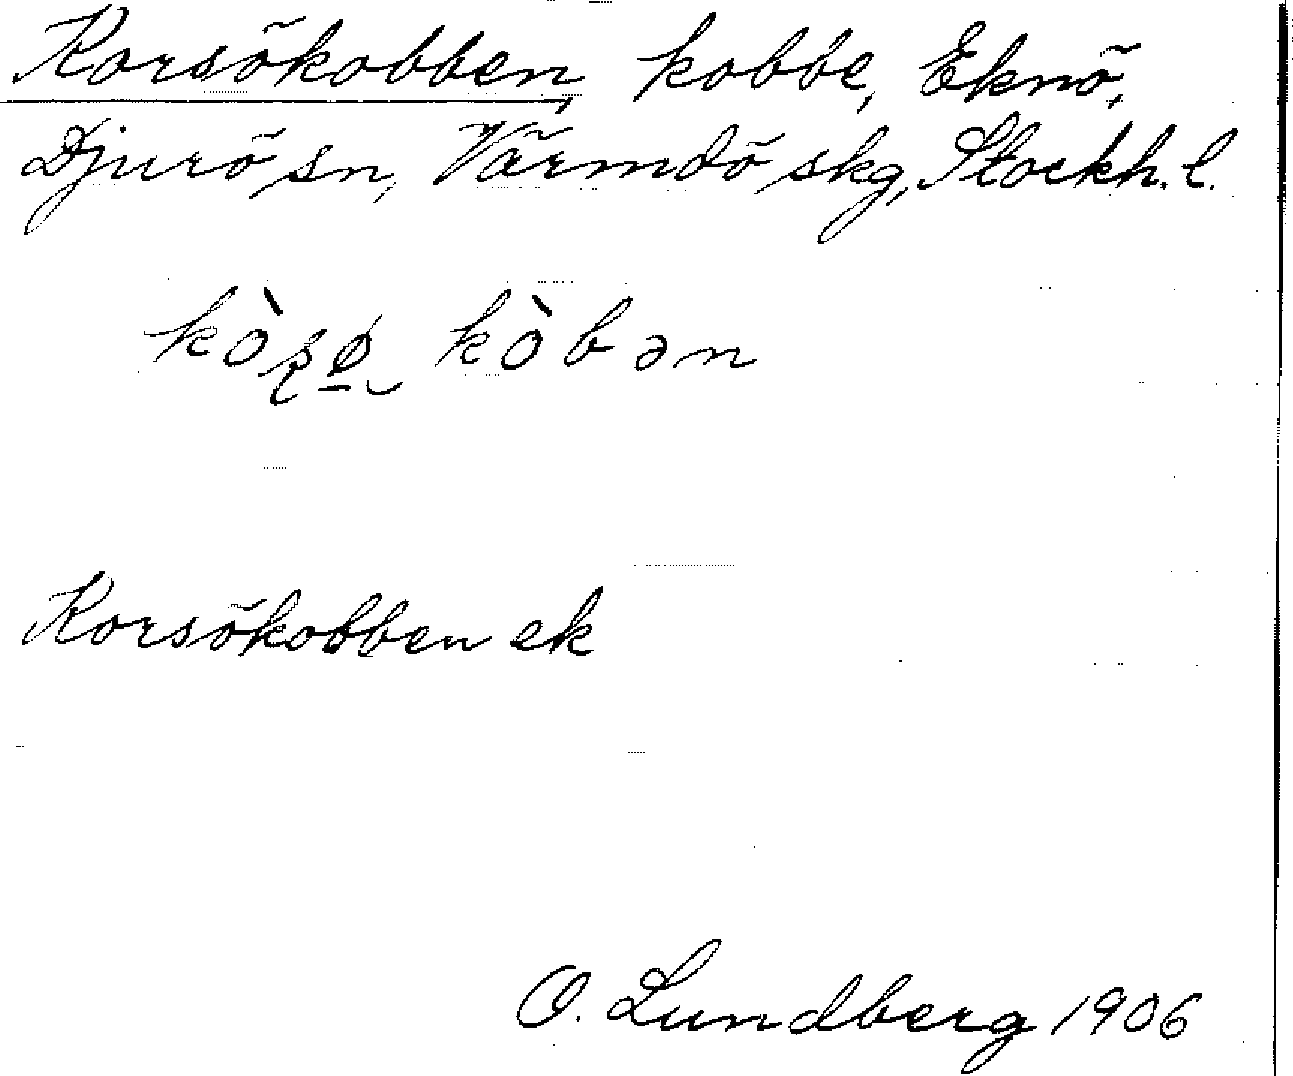 Korsökobben, kobbe, Eknö,
Djurö sn, Värmdö skg, Stockh. l.
kòʂø̠ kòbən
Korsökobben ek
O. Lundberg 1906